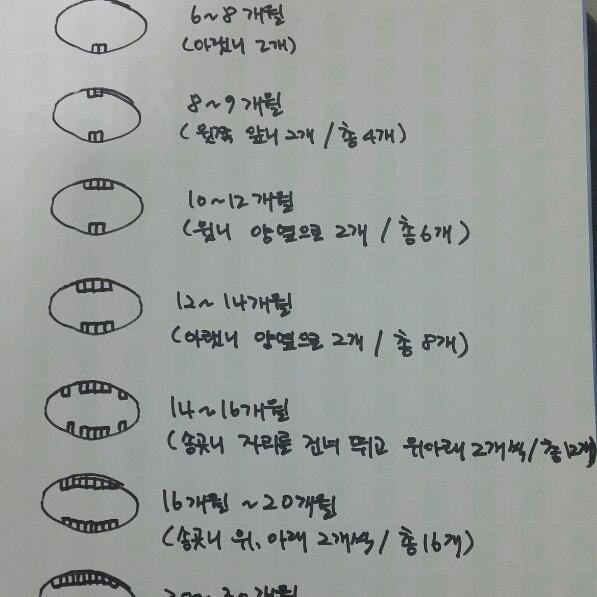 6~8개월
(아랫니 2개)
8~9개월
(윗쪽 앞니 2개/총 4개)
10~12개월
(윗니 양옆으로 2개/총6개)
12~14개월
(아랫니 양옆으로 2개/총 8개)
14~16개월
(송곳니 자리를 건너 뛰고 위아래 2개씩/총12개)
16개월~20개월
(송곳니 위, 아래 2개씩/총16개)
개월